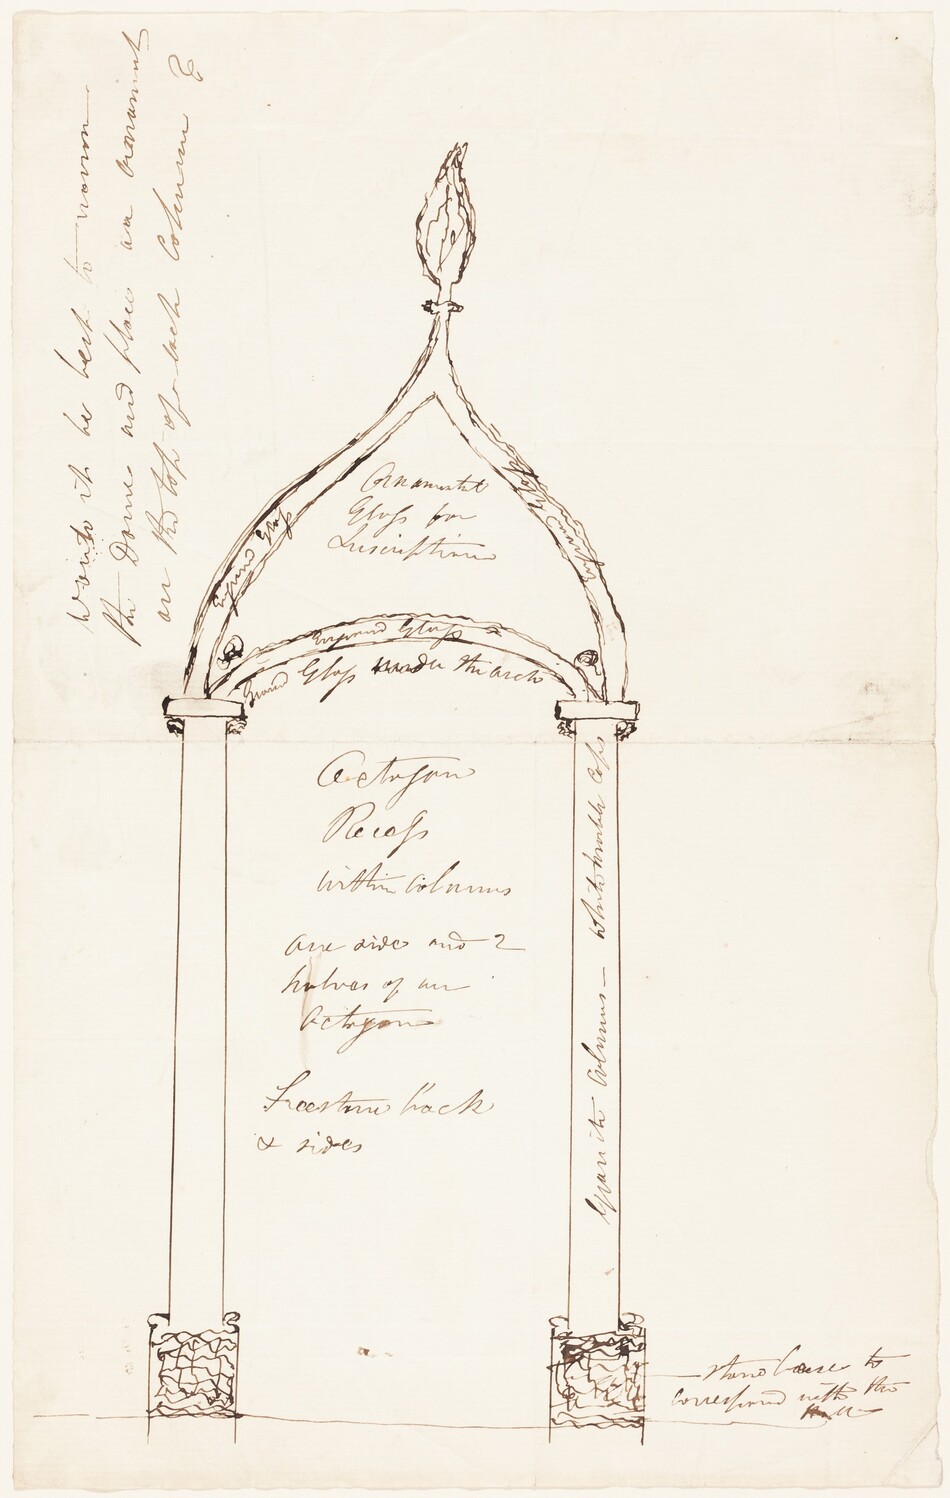 Would it be best to narrow
the Dome and place an ornament
on the top of each Column
Ornamental
Glass for
Inscription
Ground Glass
Ground Glass
Ground Glass
Ground Glass under the arch
Octagon
Recess
within columns
one side and 2
halves of an
Octagon
Freestone back
& sides
Granite Columns — White marble Caps
Stone base to
correspond with the